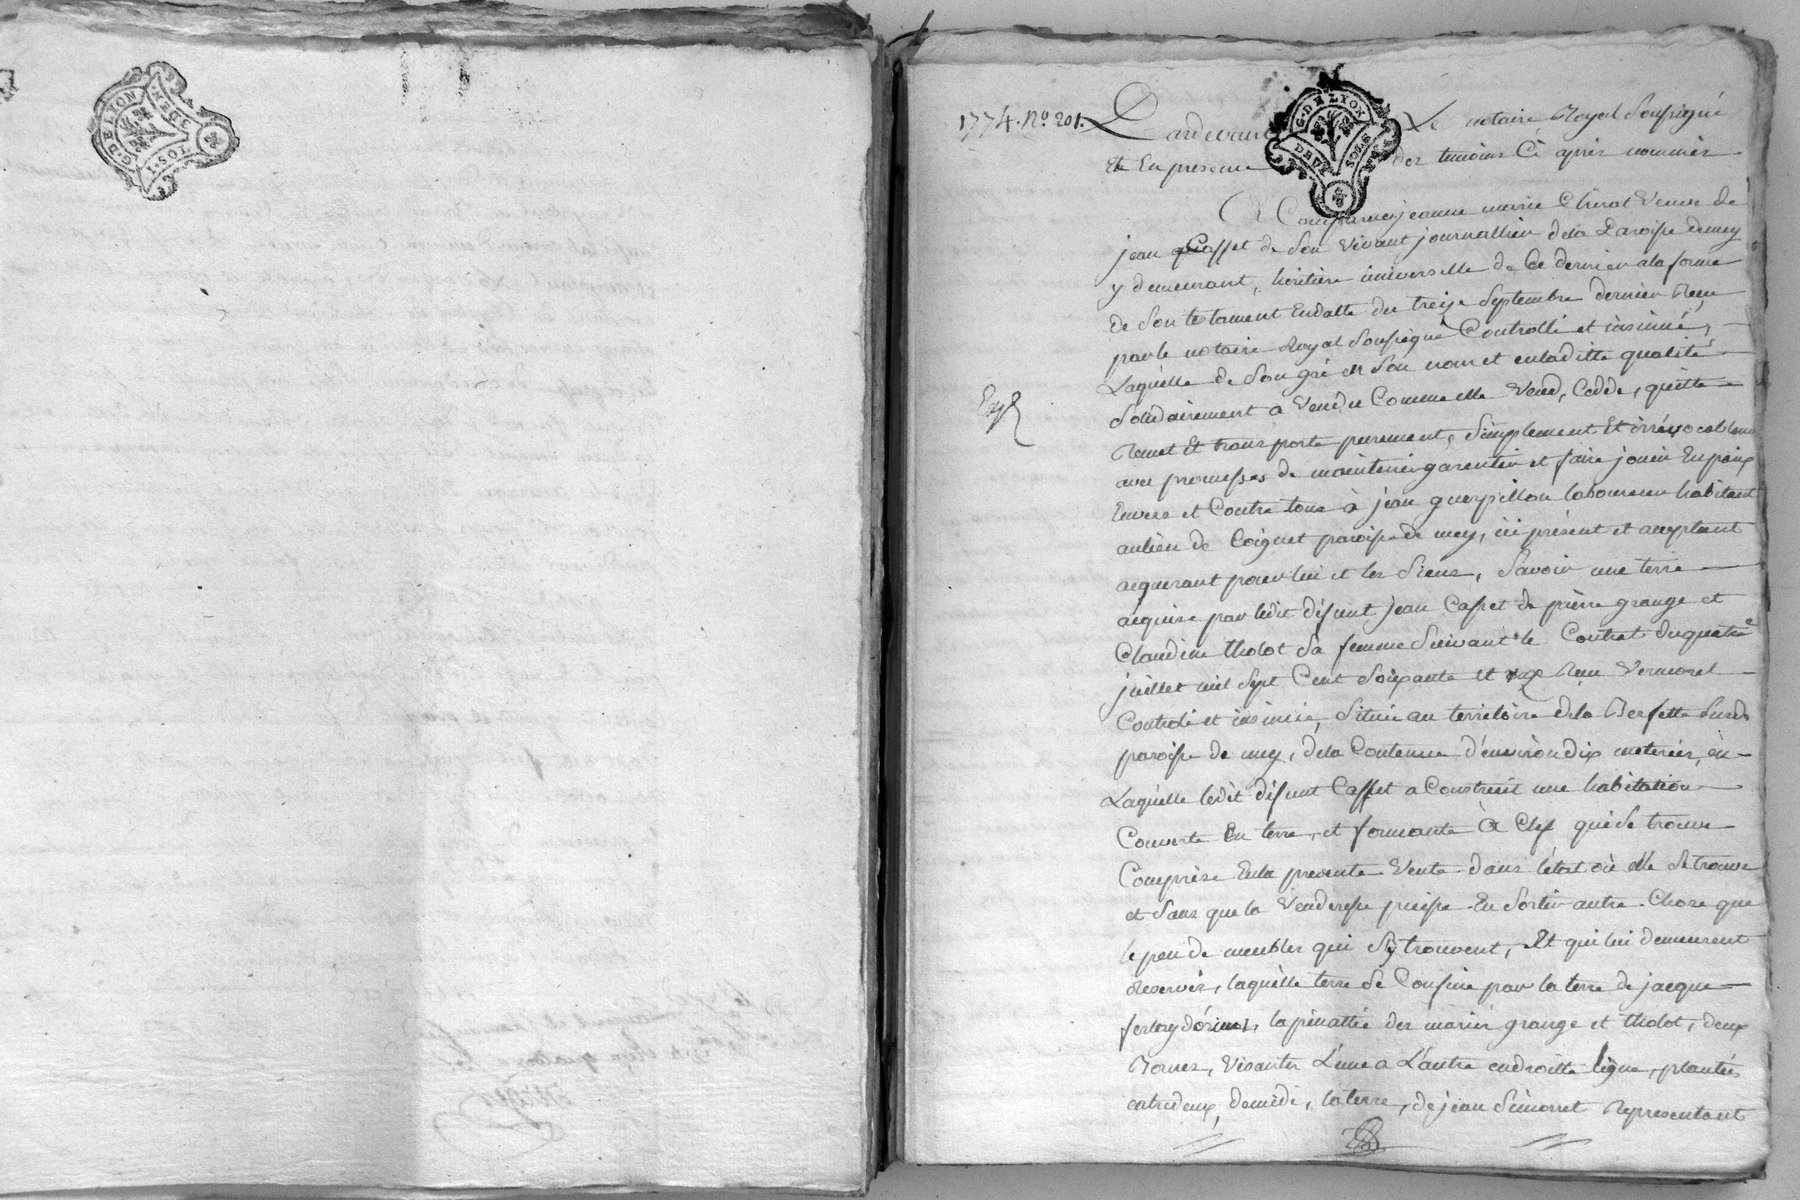 G. DE LYON
1. SOL
3 DEN.
1774. No. 201.
G. DE LYON
DEUX SOLS
Pardevant Le notaire Royal Soussigné
Et En presence des temoins Cy après nommés
A Comparu jeanne marie Cherat Veuve de
jean Casset de Son Vivant journallier dela Paroisse de mey
y demeurant, heritiere universelle de Ce dernier a la forme
de Son testament Endatte du treize Septembre dernier Reçu
par le notaire Royal Soussigné Controllé et insinué,
Laquelle de Son gré en Son nom et enladitte qualité
Solidairement a Vendu Comme elle Vend, Cedde, quitte
Remet Et transporte purement, Simplement Et irrévocablement
avec promesses de maintenir garentir et faire jouir En paix
Envers et Contre tous à jean guerpillon laboureur habitant
aulieu de Coignet paroisse de mey, ici présent et acceptant
acquerant pour lui et les Siens, Savoir une terre
acquise par ledit défunt jean Casset de pierre grange et
Claudine tholot Sa femme Suivant le Contrat du quatre
juillet mil Sept Cent Soixante et Reçu Vermorel
Controlé et insinué, Située au territoire dela
paroisse de mey, déla Contenue d'environ dix meterées, en
Laquelle ledit défunt Casset a Construit une habitation
Couverte En terre, et formante à Clef qui Se trouve
Comprise Enla presente Vente dans l'état où elle Se trouve
et Sans que la Venderesse puisse En Sortir autre Chose que
le peu de meubles qui S'y trouvent, Et qui lui demeurent
Reservés, laquelle terre Se Confine par la terre de jacque
ferlay d'orient, la pinattée des mariés grange et tholot, deux
Bornes, Visantes L'une a L'autre endroitte ligne, plantées
entredeux, demidi, la terre, de jean Simonet Representant